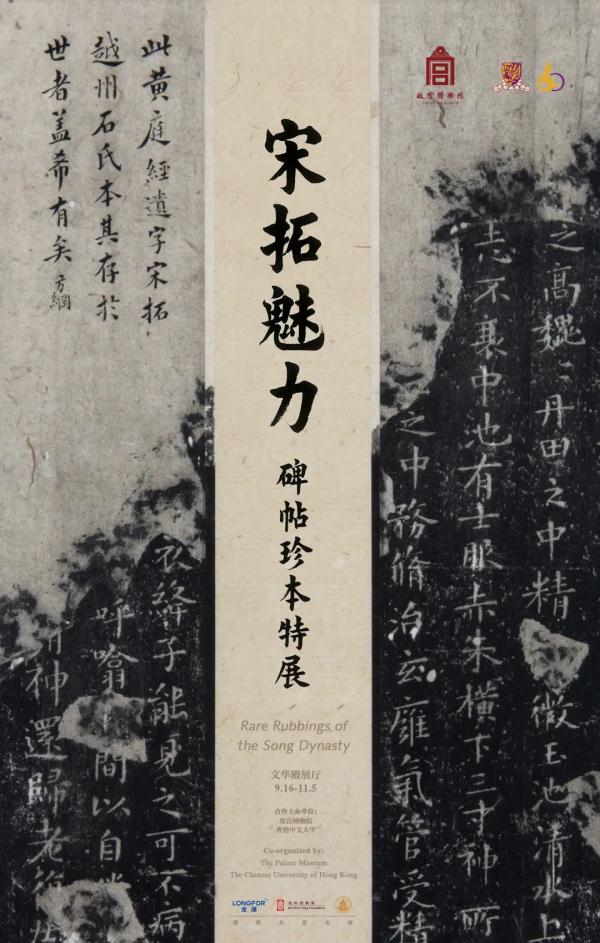 此黄庭經遺字宋拓
越州石氏本其存於
世者盖希有矣 方綱
故宫博物院
宋拓魅力
碑帖珍本特展
Rare Rubbings of
the Song Dynasty
文华殿展厅
9.16-11.5
合作主办单位：
故宫博物院
香港中文大学
Co-organized by:
The Palace Museum
The Chinese University of Hong Kong
LONGFOR
龙湖
提供公益支持
之高巍〻丹田之中精微玉池清水上
志不衰中池有士服赤朱横下三寸神所
之中務脩治玄廱氣管受精
衣絳子能見之可不病
呼噏間以自
神還歸老復